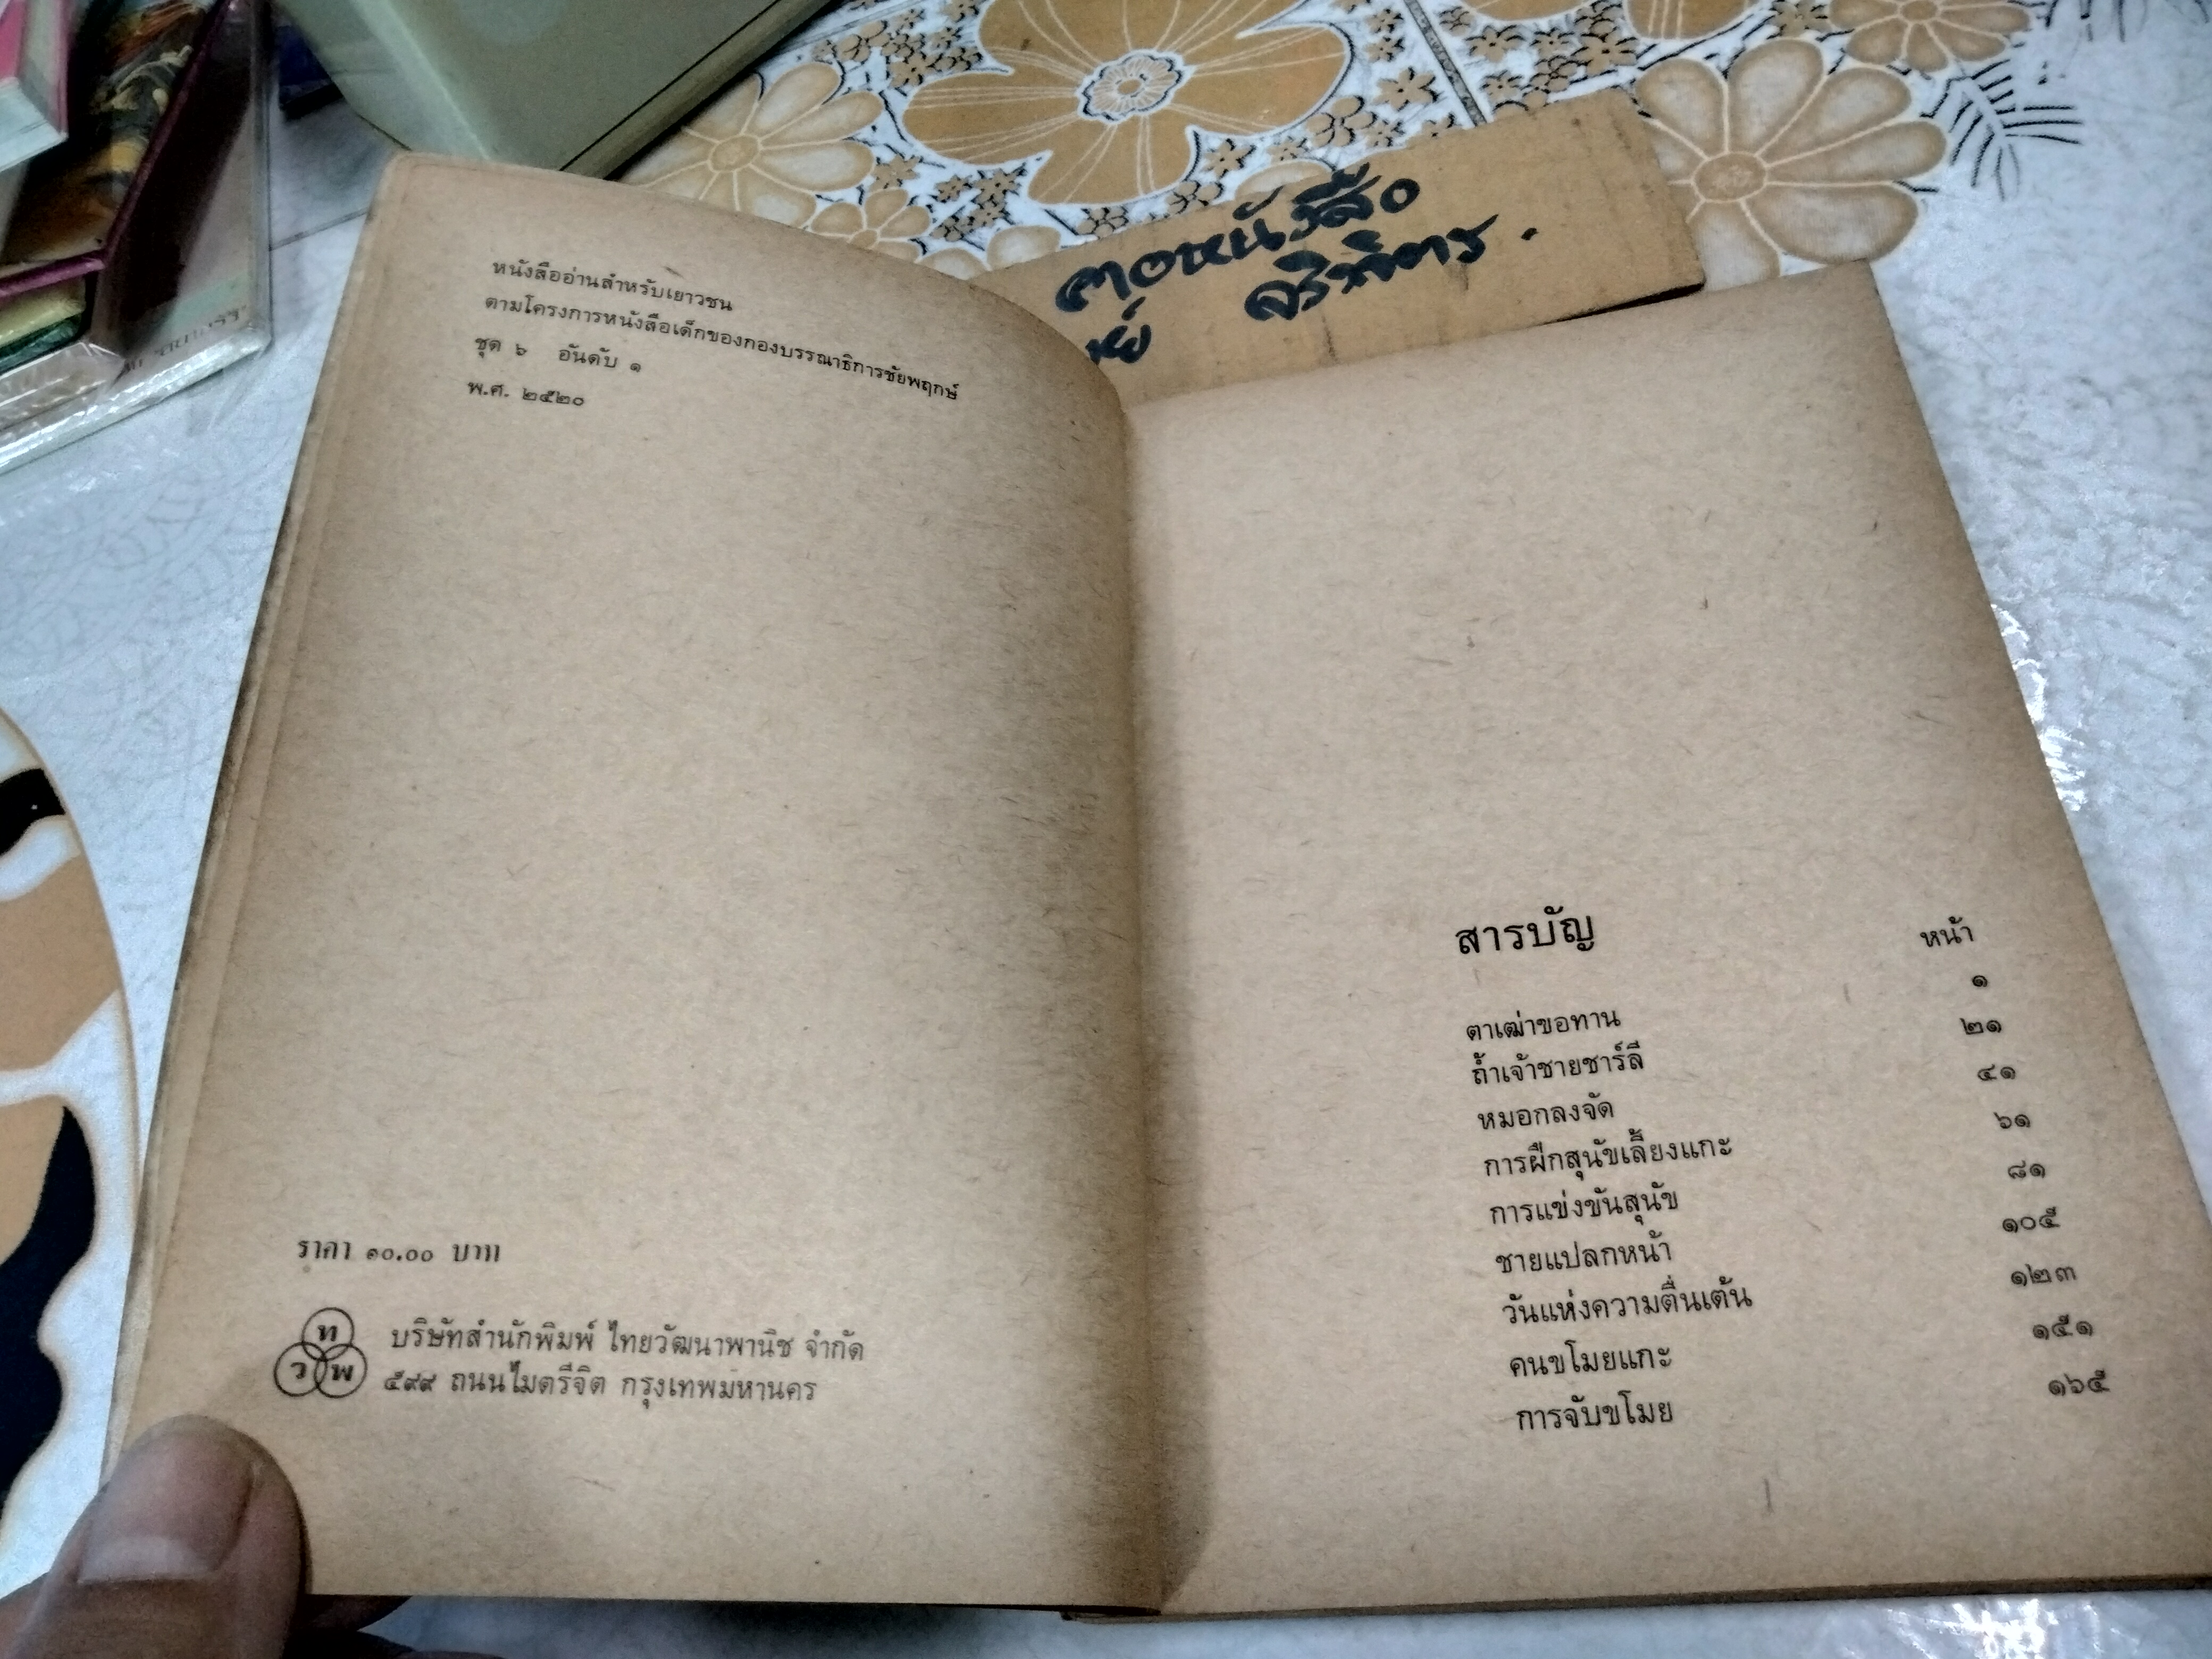 คอหนังสือ
หนังสืออ่านสำหรับเยาวชน
ตามโครงการหนังสือเด็กของกองบรรณาธิการชัยพฤกษ์
ชุด ๖ อันดับ ๑
พ.ศ. ๒๕๒๐
ราคา ๑๐.๐๐ บาท
ท
ว พ
บริษัทสำนักพิมพ์ ไทยวัฒนาพานิช จำกัด
๕๙๙ ถนนไมตรีจิต กรุงเทพมหานคร
สารบัญ
หน้า
ตาเฒ่าขอทาน ๑
ถ้ำเจ้าชายชาร์ลี ๒๑
หมอกลงจัด ๔๑
การฝึกสุนัขเลี้ยงแกะ ๖๑
การแข่งขันสุนัข ๘๑
ชายแปลกหน้า ๑๐๕
วันแห่งความตื่นเต้น ๑๒๓
คนขโมยแกะ ๑๕๑
การจับขโมย ๑๖๕